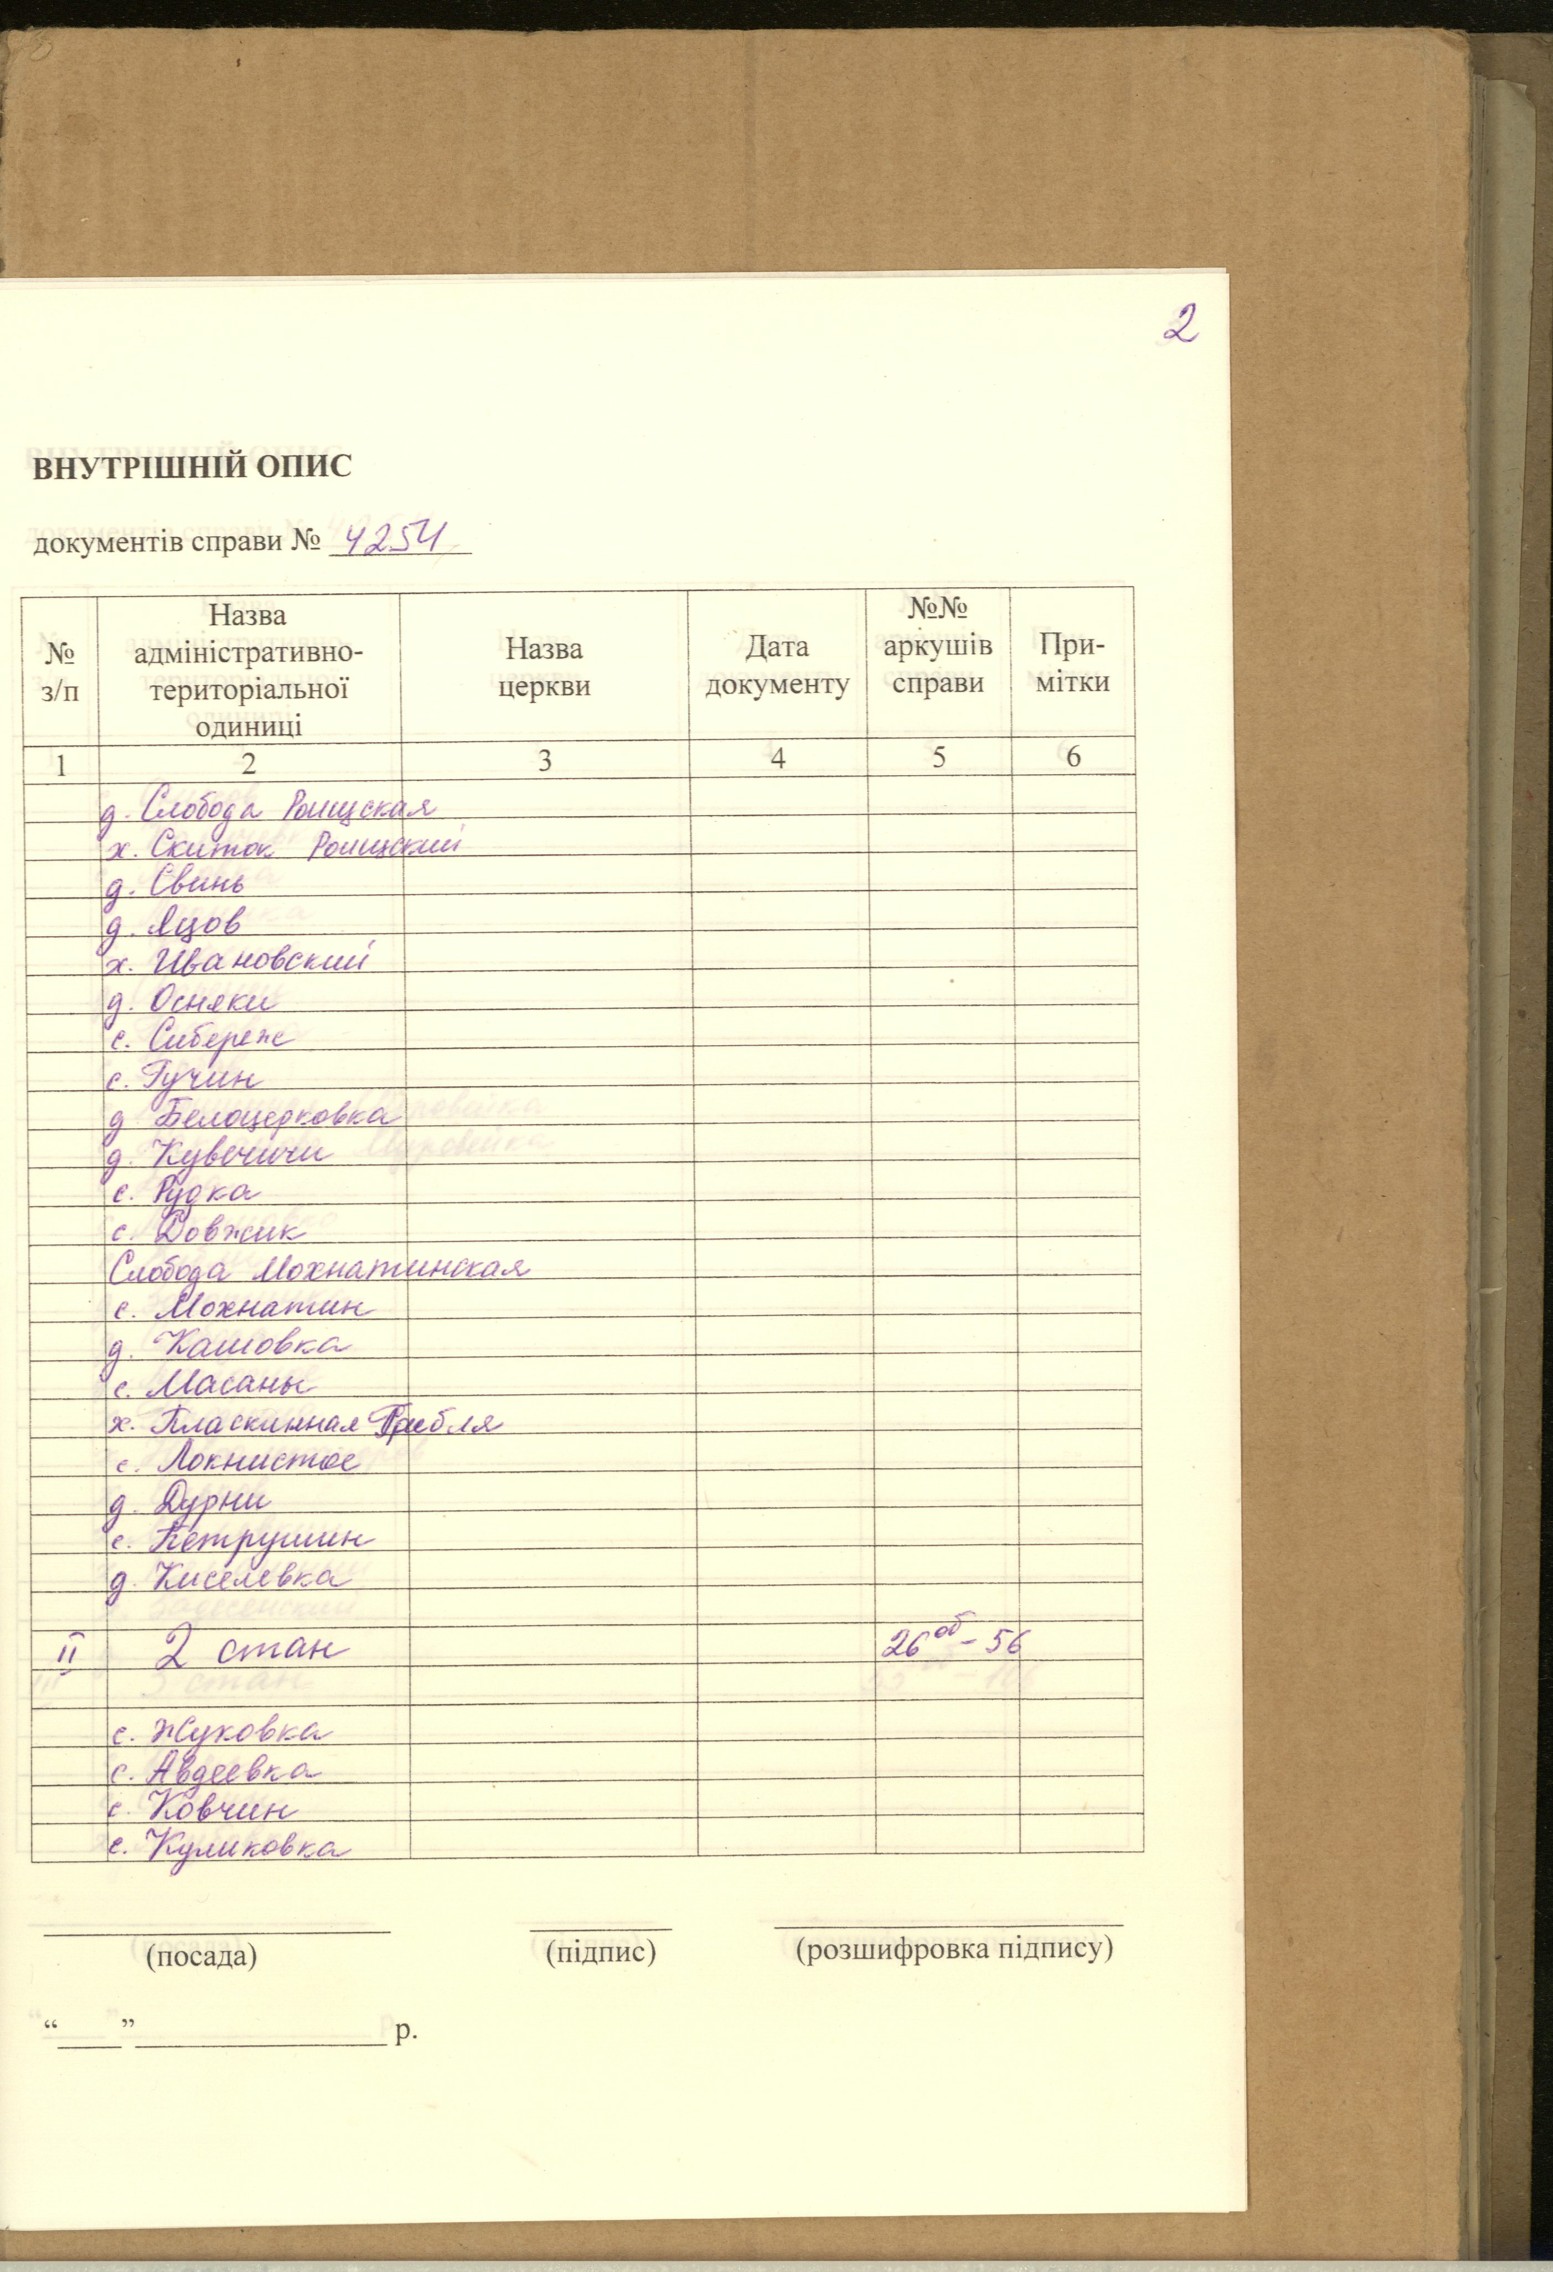 2
ВНУТРІШНІЙ ОПИС
документів справи № 4254
№ з/п
Назва адміністративно-територіальної одиниці
Назва церкви
Дата документу
№№ аркушів справи
При-мітки
1 2 3 4 5 6
д. Слобода Роищская
х. Скиток Роищский
д. Свинь
д. Яцов
х. Ивановский
д. Осняки
с. Сибереж
с. Гучин
д Белоцерковка
д. Кувечичи
с. Рудка
с. Довжик
Слобода Мохнатинская
с. Мохнатин
д. Кашовка
с. Масаны
х. Пласкинная Гребля
с. Локнистое
д. Дурни
с. Петрушин
д. Киселевка
II 2 стан 26об - 56
с. Жуковка
с. Авдеевка
с. Ковчин
с. Куликовка
(посада) (підпис) (розшифровка підпису)
“____” ________________ р.